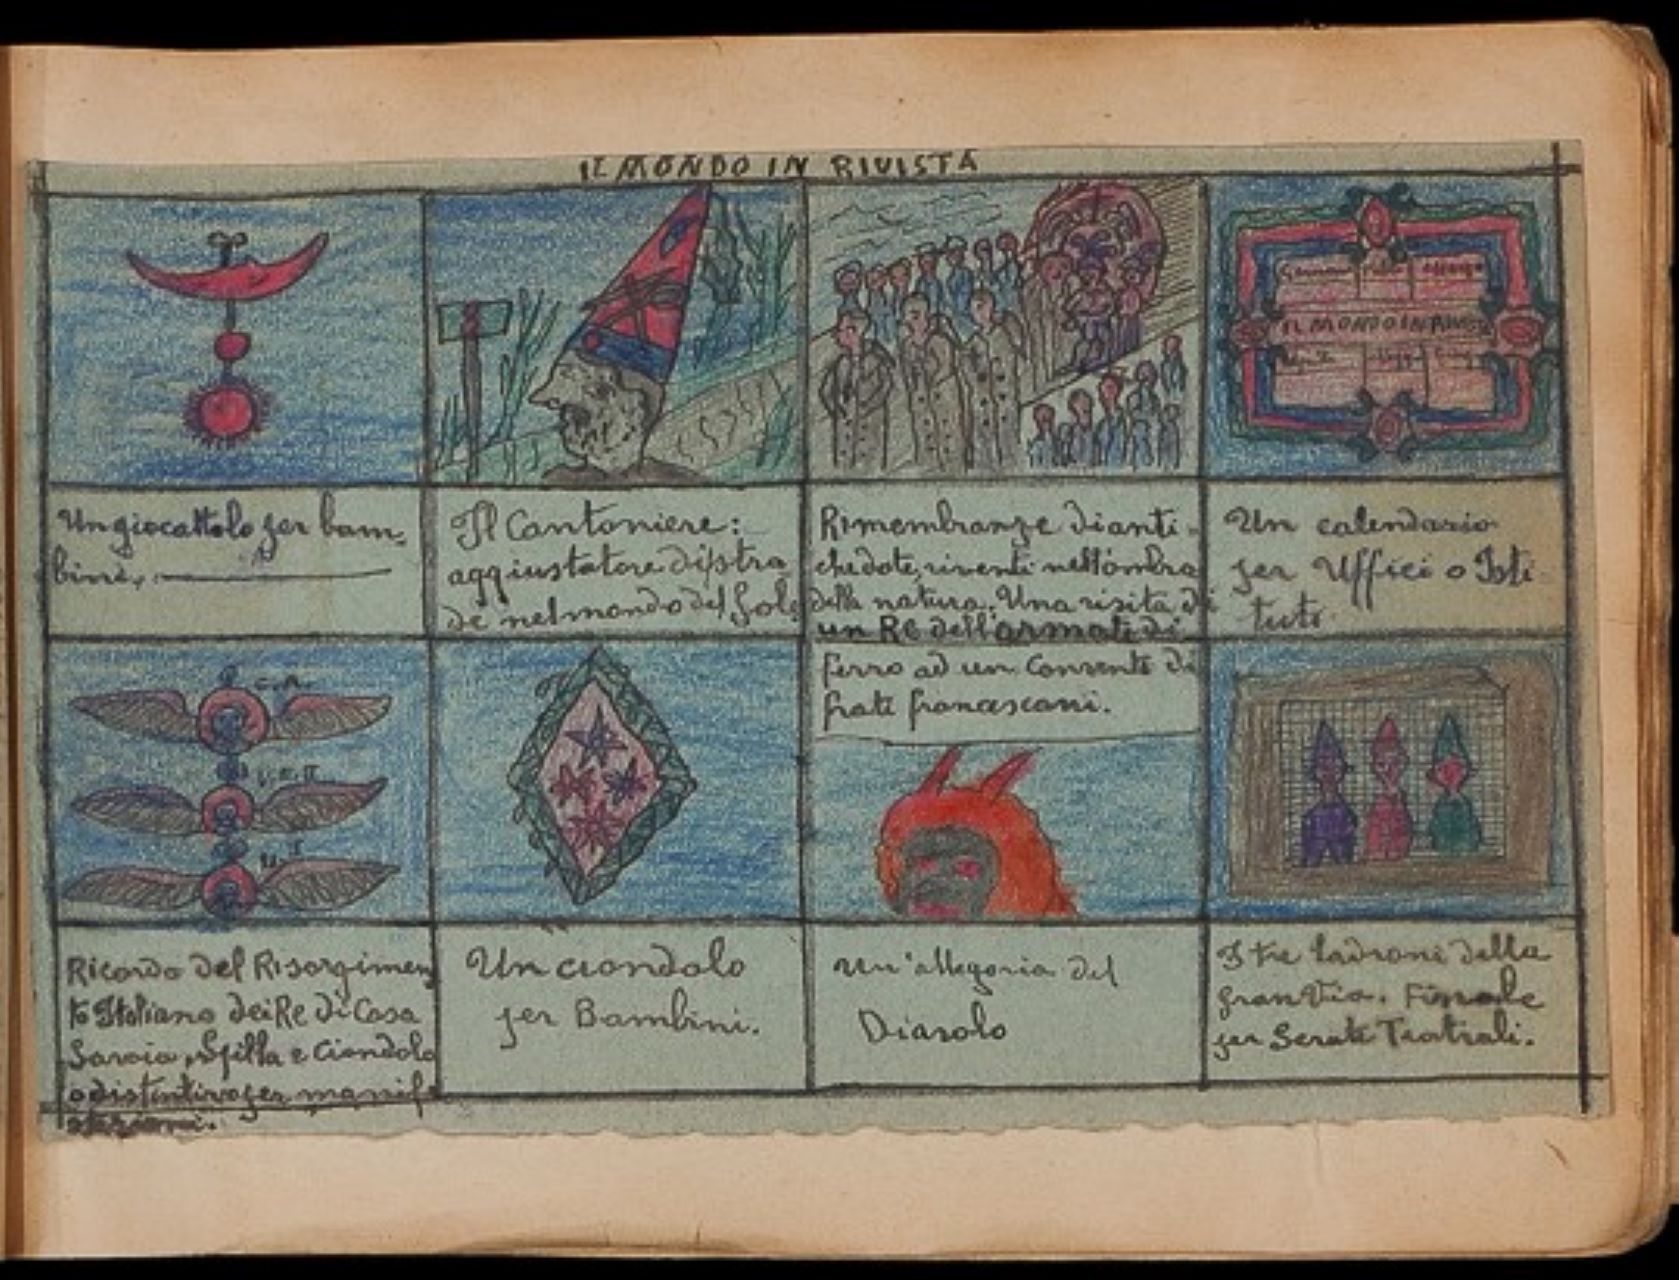 IL MONDO IN RIVISTA
Un giocattolo per bam-
bini,
Il Cantoniere:
aggiustatore di stra
de nel mondo del Sole
Rimembranze di anti-
che dote, riventi nell'ombra
della natura. Una visita di
un Re dell'armate di
ferro ad un Convente di
frati francescani.
IL MONDO IN RIVISTA
Un calendario
per Uffici o Isti
tuti.
Ricordo del Risorgimen
to Italiano dei Re di Casa
Savoia, Spilla e Ciondolo
o distintivo per manife
stazioni.
Un ciondolo
per Bambini.
Un'allegoria del
Diavolo
I tre ladroni della
gran Via. Finale
per Serate Teatrali.